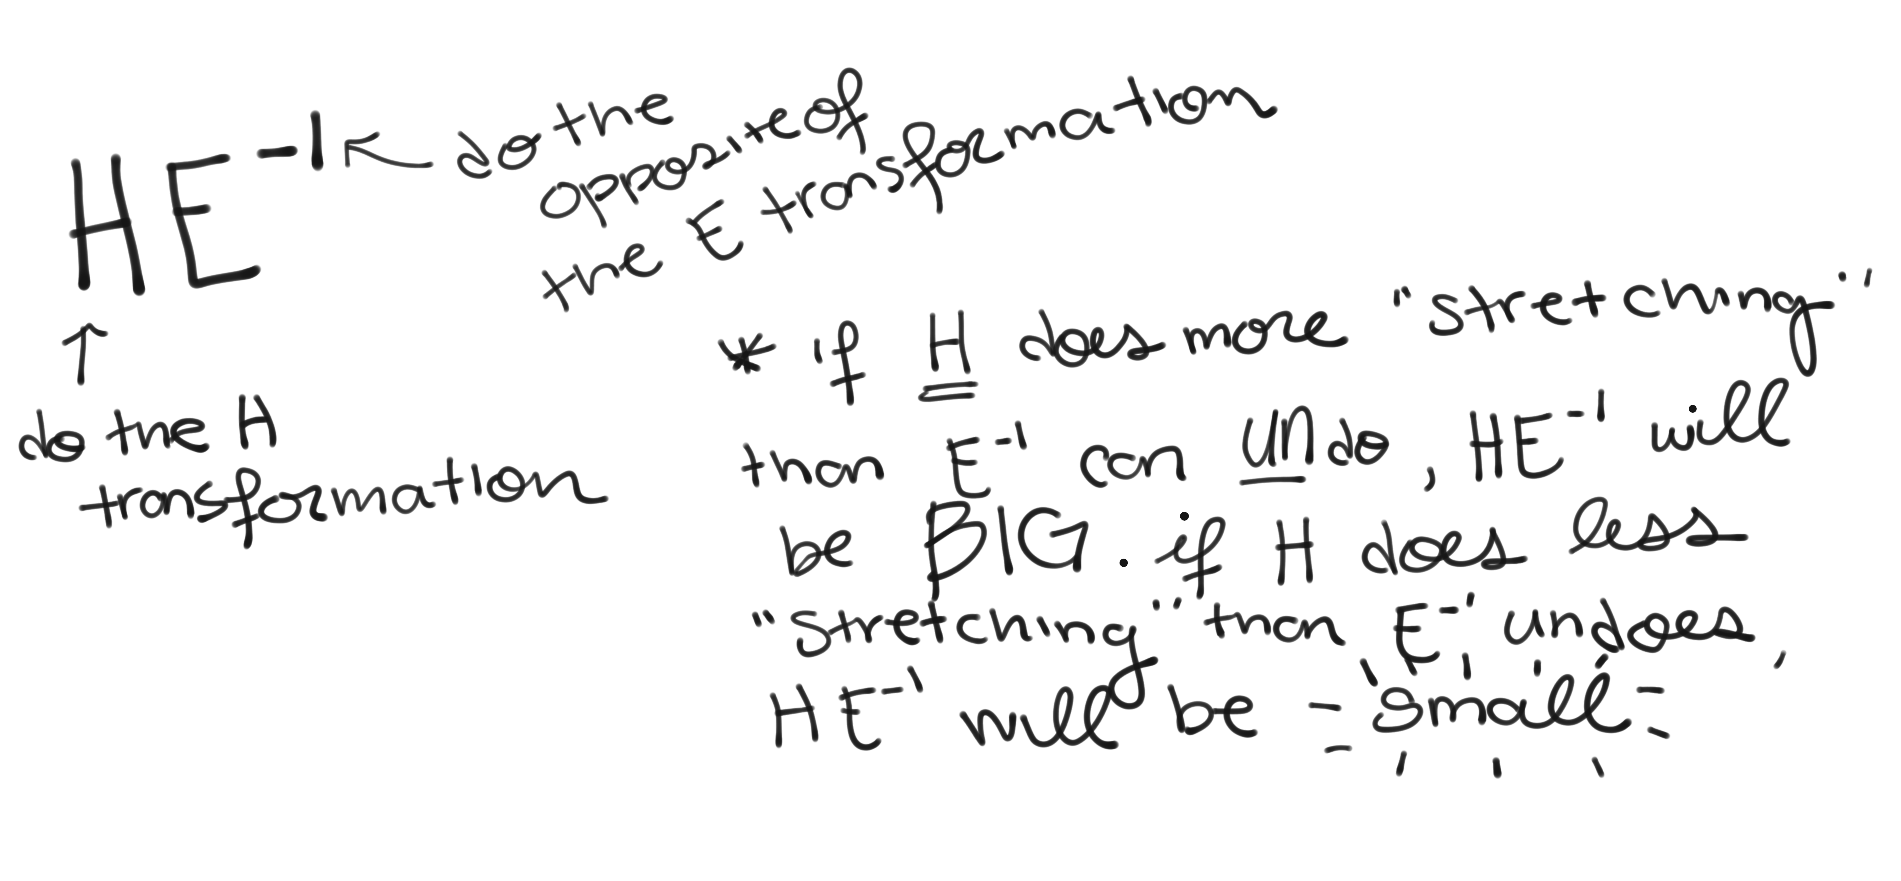 HE⁻¹ ← do the
opposite of
the E transformation
↑
do the H
transformation
* if H does more "stretching"
than E⁻¹ can undo, HE⁻¹ will
be BIG. if H does less
"stretching" than E⁻¹ undoes,
HE⁻¹ will be small